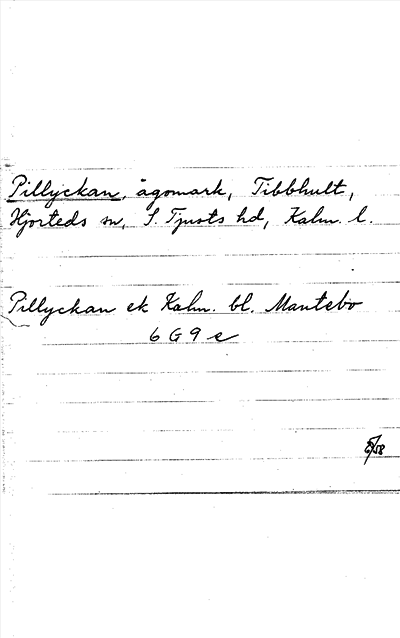 Pillyckan, ägomark, Tibbhult,
Hjorteds sn, S. Tjusts hd, Kalm. l.
Pillyckan ek Kalm. bl. Mantebo
6 G 9 e